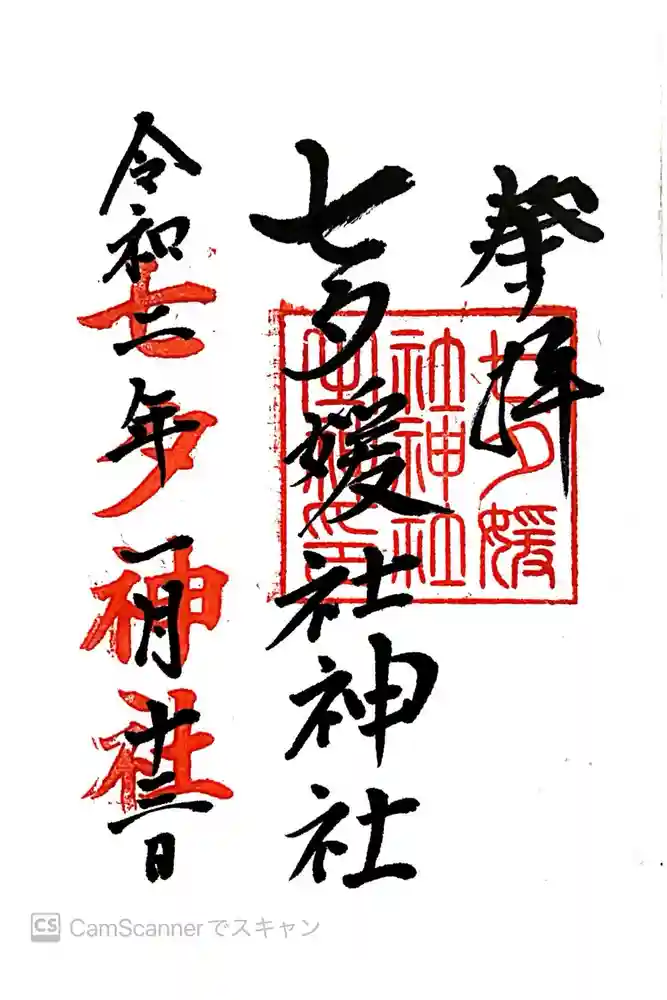 奉拝
七夕媛社神社
七夕媛
社神社
令和二年一月十三日
七夕神社
CamScannerでスキャン